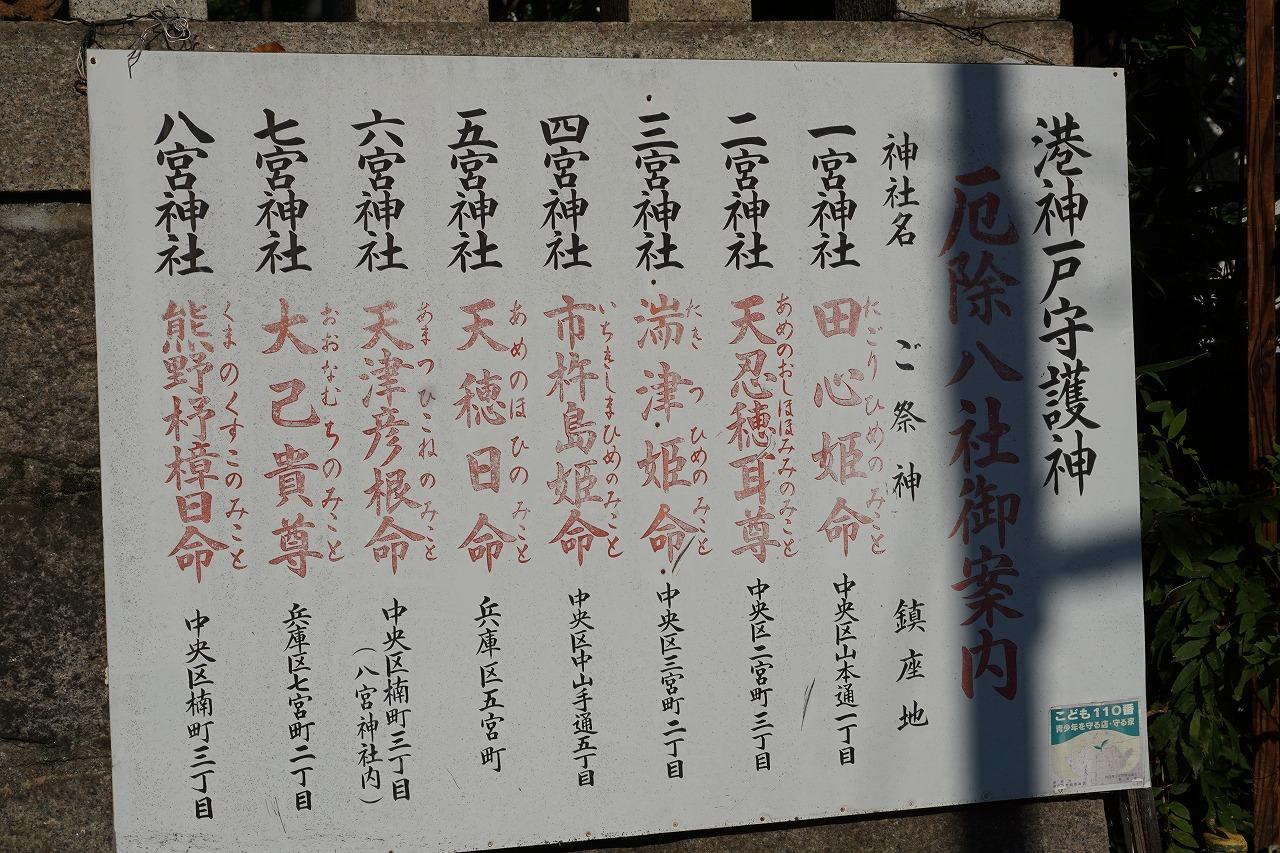 港神戸守護神
厄除八社御案内
神社名 ご祭神 鎮座地
一宮神社 田心姫命 中央区山本通一丁目
たごりひめのみこと
二宮神社 天忍穂耳尊 中央区二宮町三丁目
あめのおしほほみみのみこと
三宮神社 湍津姫命 中央区三宮町二丁目
たきつひめのみこと
四宮神社 市杵島姫命 中央区中山手通五丁目
いちきしまひめのみこと
五宮神社 天穂日命 兵庫区五宮町
あめのほひのみこと
六宮神社 天津彦根命 中央区楠町三丁目
(八宮神社内)
あまつひこねのみこと
七宮神社 大己貴尊 兵庫区七宮町二丁目
おおなむちのみこと
八宮神社 熊野杼樟日命 中央区楠町三丁目
くまのくすこのみこと
こども110番
青少年を守る店・守る家